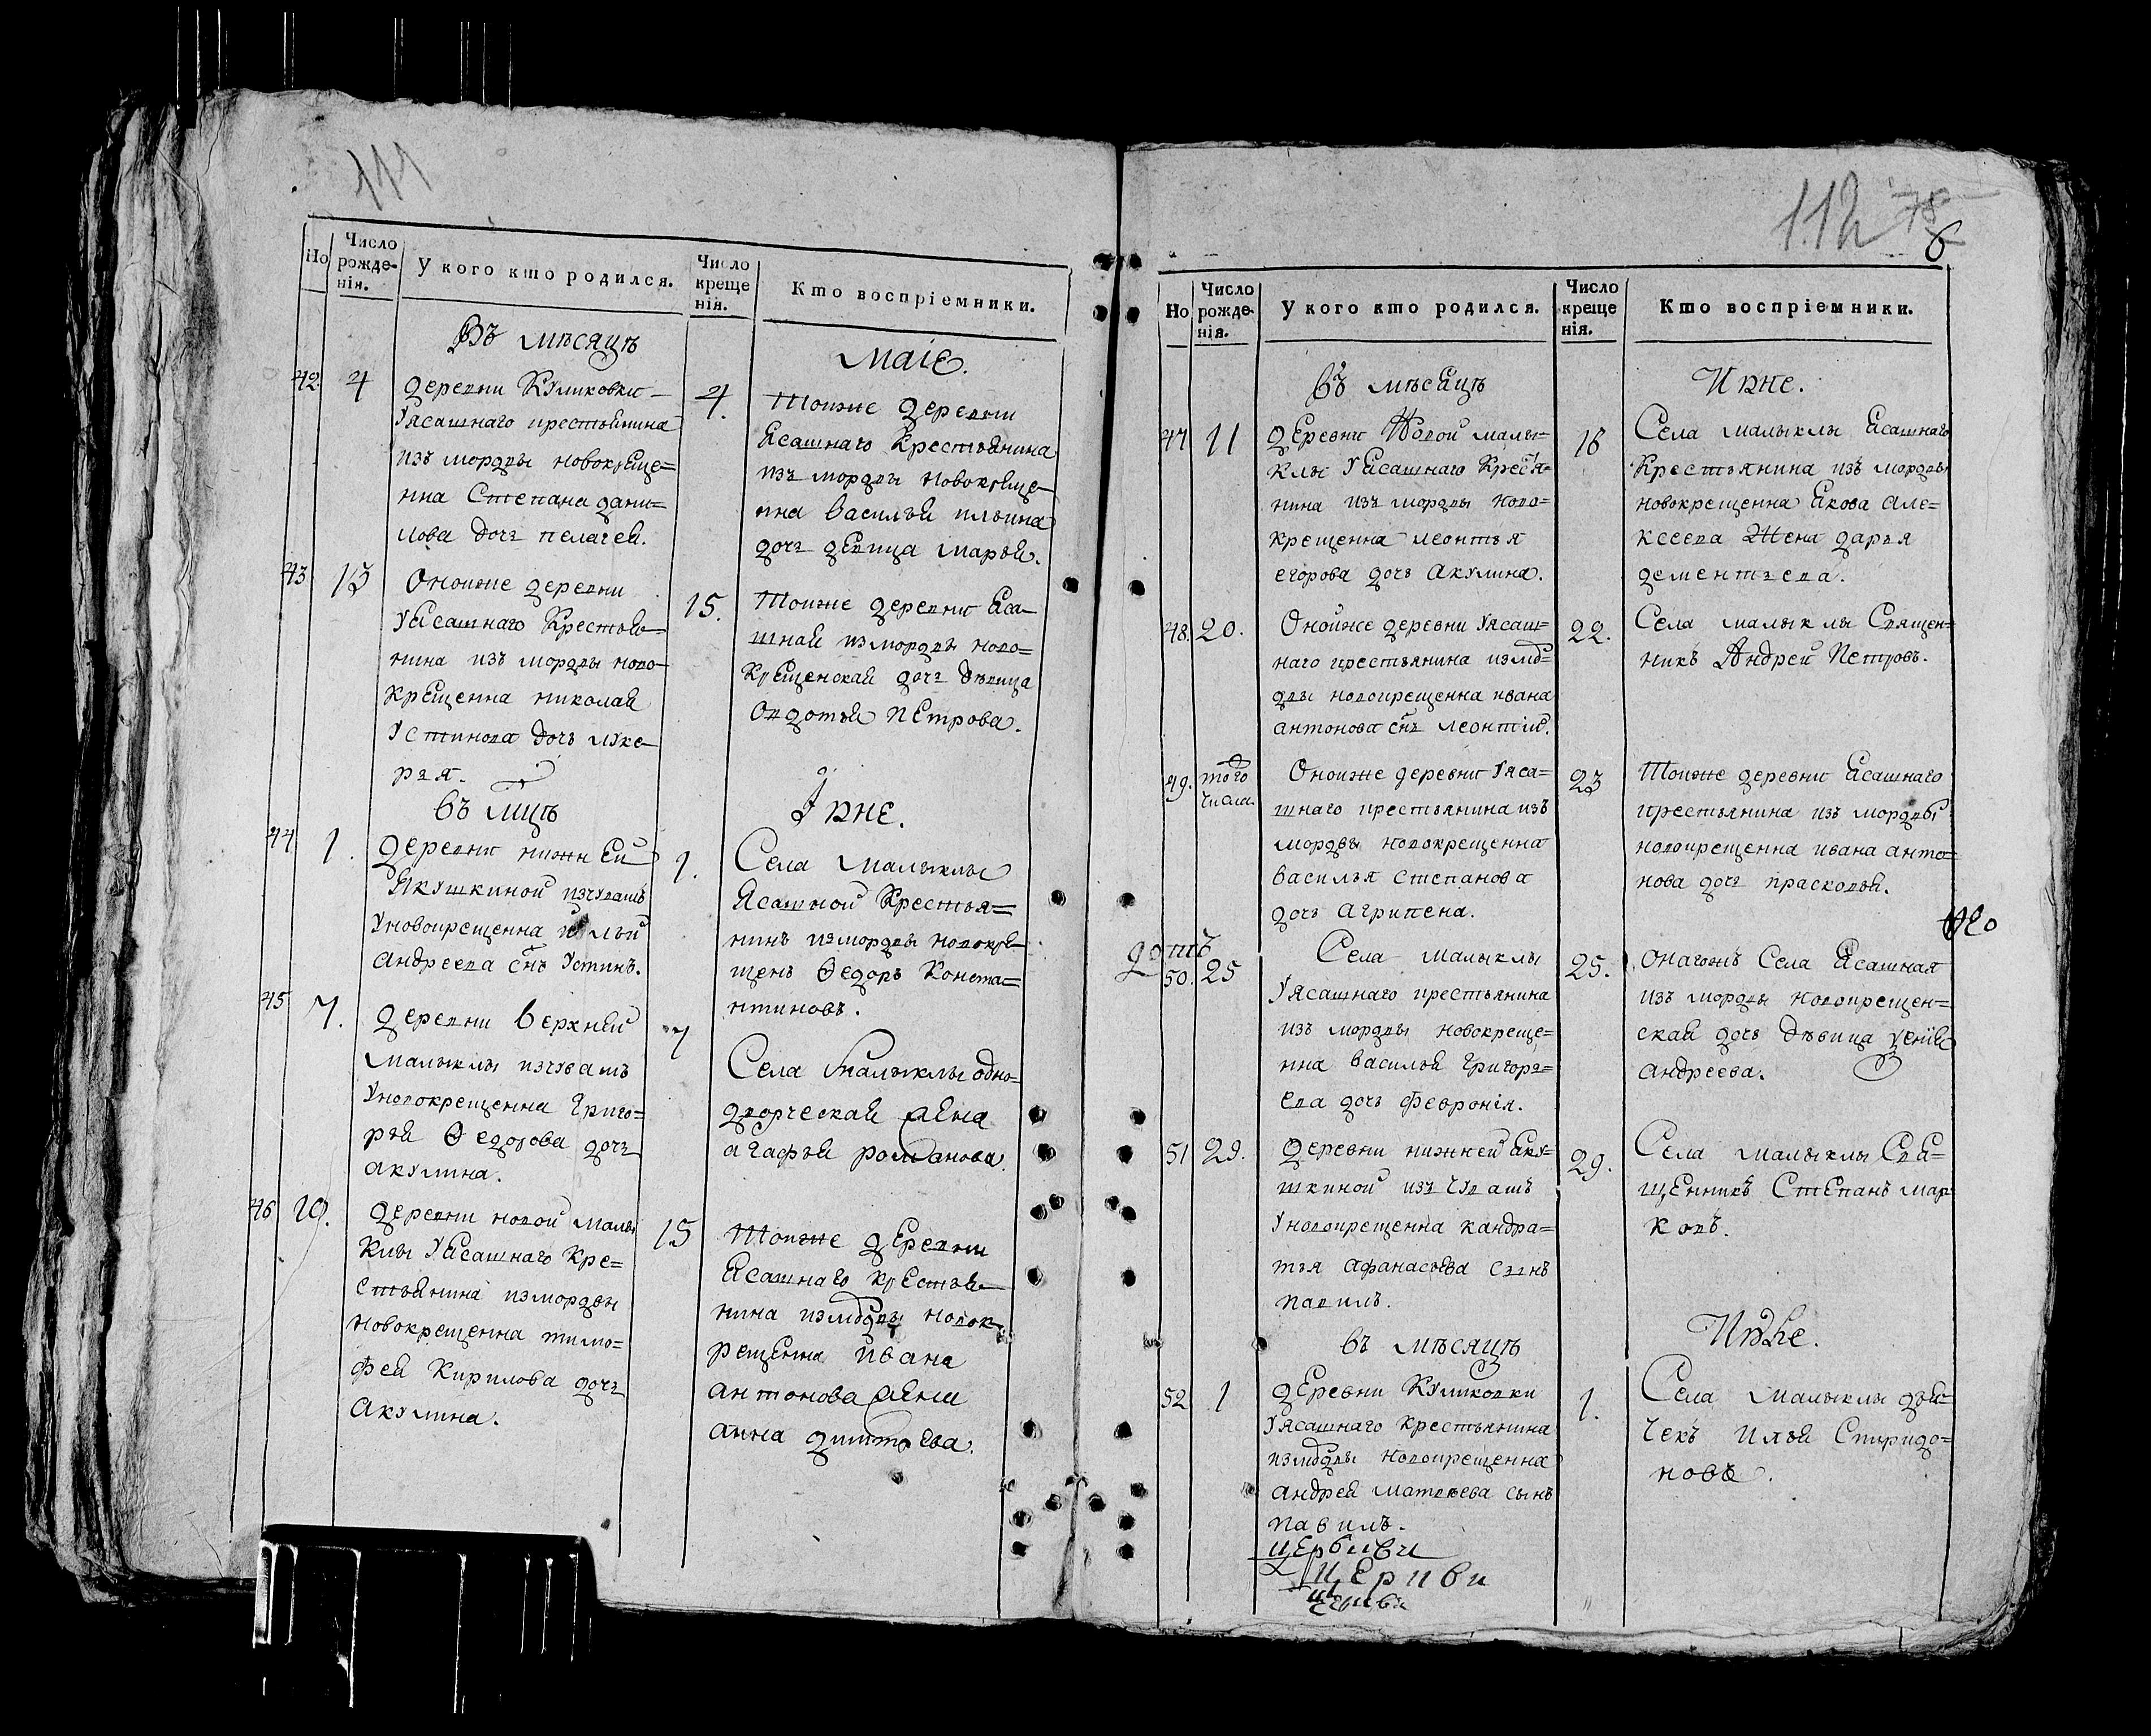 111
Но
Число рожде- нія.
У кого кто родился.
Число креще нія.
Кто воспріемники.
Въ мѣсяцѣ
маіе.
42. 4
деревни Куликовки
Уясашнаго крестьянина
изъ мордвы новокреще=
нна Степана дани=
лова дочь пелагея.
4.
Тоиже деревни
Ясашнаго Крестьянина
изъ мордвы новокреще
нна василья ильина
дочь девица марья.
43 13
Оноиже деревни
Уясашнаго Крестья=
нина изъ мордвы ново-
крещенна николая
Устинова дочь луке
рья.
15.
Тоиже деревни Яса
шная измордвы ново=
Крещенская дочь дѣвица
Овдотья Петрова.
въ мцѣ
Іюне.
44 1.
деревни нижней
Якушкиной изчувашъ
Уновокрещенна ильи
андреева снъ Устинъ.
1.
Села малыклы
Ясашной Крестья=
нинъ измордвы новокре
щенъ Ѳедоръ Конста=
нтиновъ.
45 7.
деревни верхней
малыклы изчувашъ
Уновокрещенна Григо=
рья Ѳедорова дочь
акулина.
7
Села малыклы одно-
дворческая жена
агафья романова.
46 10.
деревни новой малы
клы Уясашнаго Кре=
стьянина измордвы
новокрещенна тимо=
фея Кирилова дочь
акулина.
15
Тоиже деревни
Ясашнаго крестья
нина измодвы новок
рещенна ивана
антонова жени
анна дмитрева.
112 78
6
Но
Число рожде- нія.
У кого кто родился.
Число креще нія.
Кто воспріемники.
въ мѣсяцѣ
Июне.
47 11
деревни Новой малы=
клы Уясашнаго Крестья=
нина изъ мордвы ново=
крещенна леонтья
егорова дочь Акулина.
16
Села малыклы Ясашнаго
Крестьянина изъ мордвы
новокрещенна Якова але=
ксеева Жена дарья
дементьева.
48. 20.
Оноиже деревни Уясаш=
наго крестьянина измо=
двы новокрещенна ивана
антонова снъ леонтій.
22.
Села малыклы Священ=
никъ Андрей Петровъ.
49. того числа.
Оноиже деревни Уяса=
шнаго крестьянина изъ
мордвы новокрещенна
василья степанова
дочь агрипена.
23
Тоиже деревни Ясашнаго
крестьянина изъ мордвы
новокрещенна ивана анто=
нова дочь прасковья.
50. 25
Села малыклы
Уясашнаго крестьянина
изъ мордвы новокреще=
нна василья григорь=
ева дочь февронія.
25.
онагожъ Села Ясашная
изъ мордвы новокрещен=
ская дочь дѣвица
андреева.
51 29.
деревни нижней Яку=
шкиной изъ чувашъ
Уновокрещенна кандра=
тья афанасьева сынъ
павилъ.
29.
Села малыклы Свя=
щенникъ Степанъ мар
ковъ.
въ мѣсяцѣ
Июле.
52 1
деревни Куликовки
Уясашнаго крестьянина
измодвы новокрещенна
андрея матвеева сынъ
павилъ.
1.
Села малыклы дья=
чекъ илья Спиридо=
новъ.
церкви
церкви